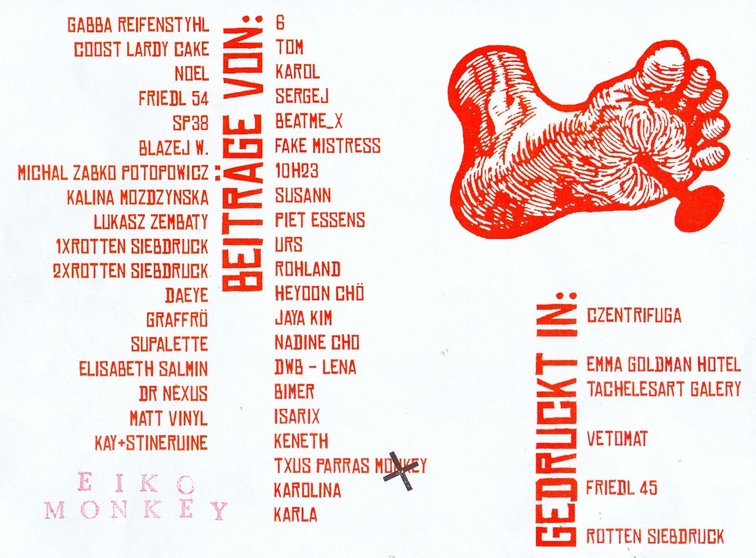 BEITRÄGE VON:
GABBA REIFENSTYHL
COOST LARDY CAKE
NOEL
FRIEDL 54
SP38
BLAZEJ W.
MICHAL ZABKO POTOPOWICZ
KALINA MOZDZYNSKA
LUKASZ ZEMBATY
1XROTTEN SIEBDRUCK
2XROTTEN SIEBDRUCK
DAEYE
GRAFFRÖ
SUPALETTE
ELISABETH SALMIN
DR NÈXUS
MATT VINYL
KAY+STINERUINE
EIKO
MONKEY
6
TOM
KAROL
SERGEJ
BEATME_X
FAKE MISTRESS
10H23
SUSANN
PIET ESSENS
URS
ROHLAND
HEYOON CHÖ
JAYA KIM
NADINE CHO
DWB - LENA
BIMER
ISARIX
KENETH
TXUS PARRAS MONKEY
KAROLINA
KARLA
GEDRUCKT IN:
CZENTRIFUGA
EMMA GOLDMAN HOTEL
TACHELESART GALERY
VETOMAT
FRIEDL 45
ROTTEN SIEBDRUCK